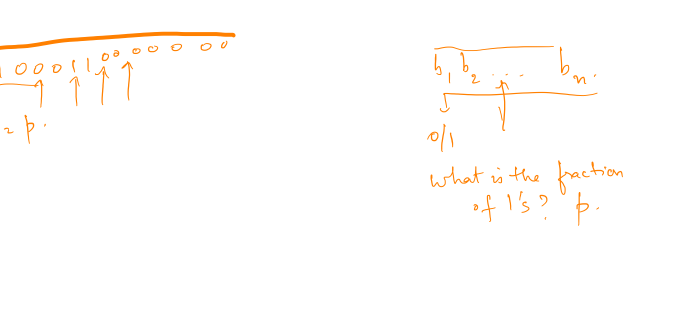 1 0 0 0 1 1 0 0 0 0 0 0 0
= p.
b1 b2 .... bn.
0/1
What is the fraction
of 1's? p.